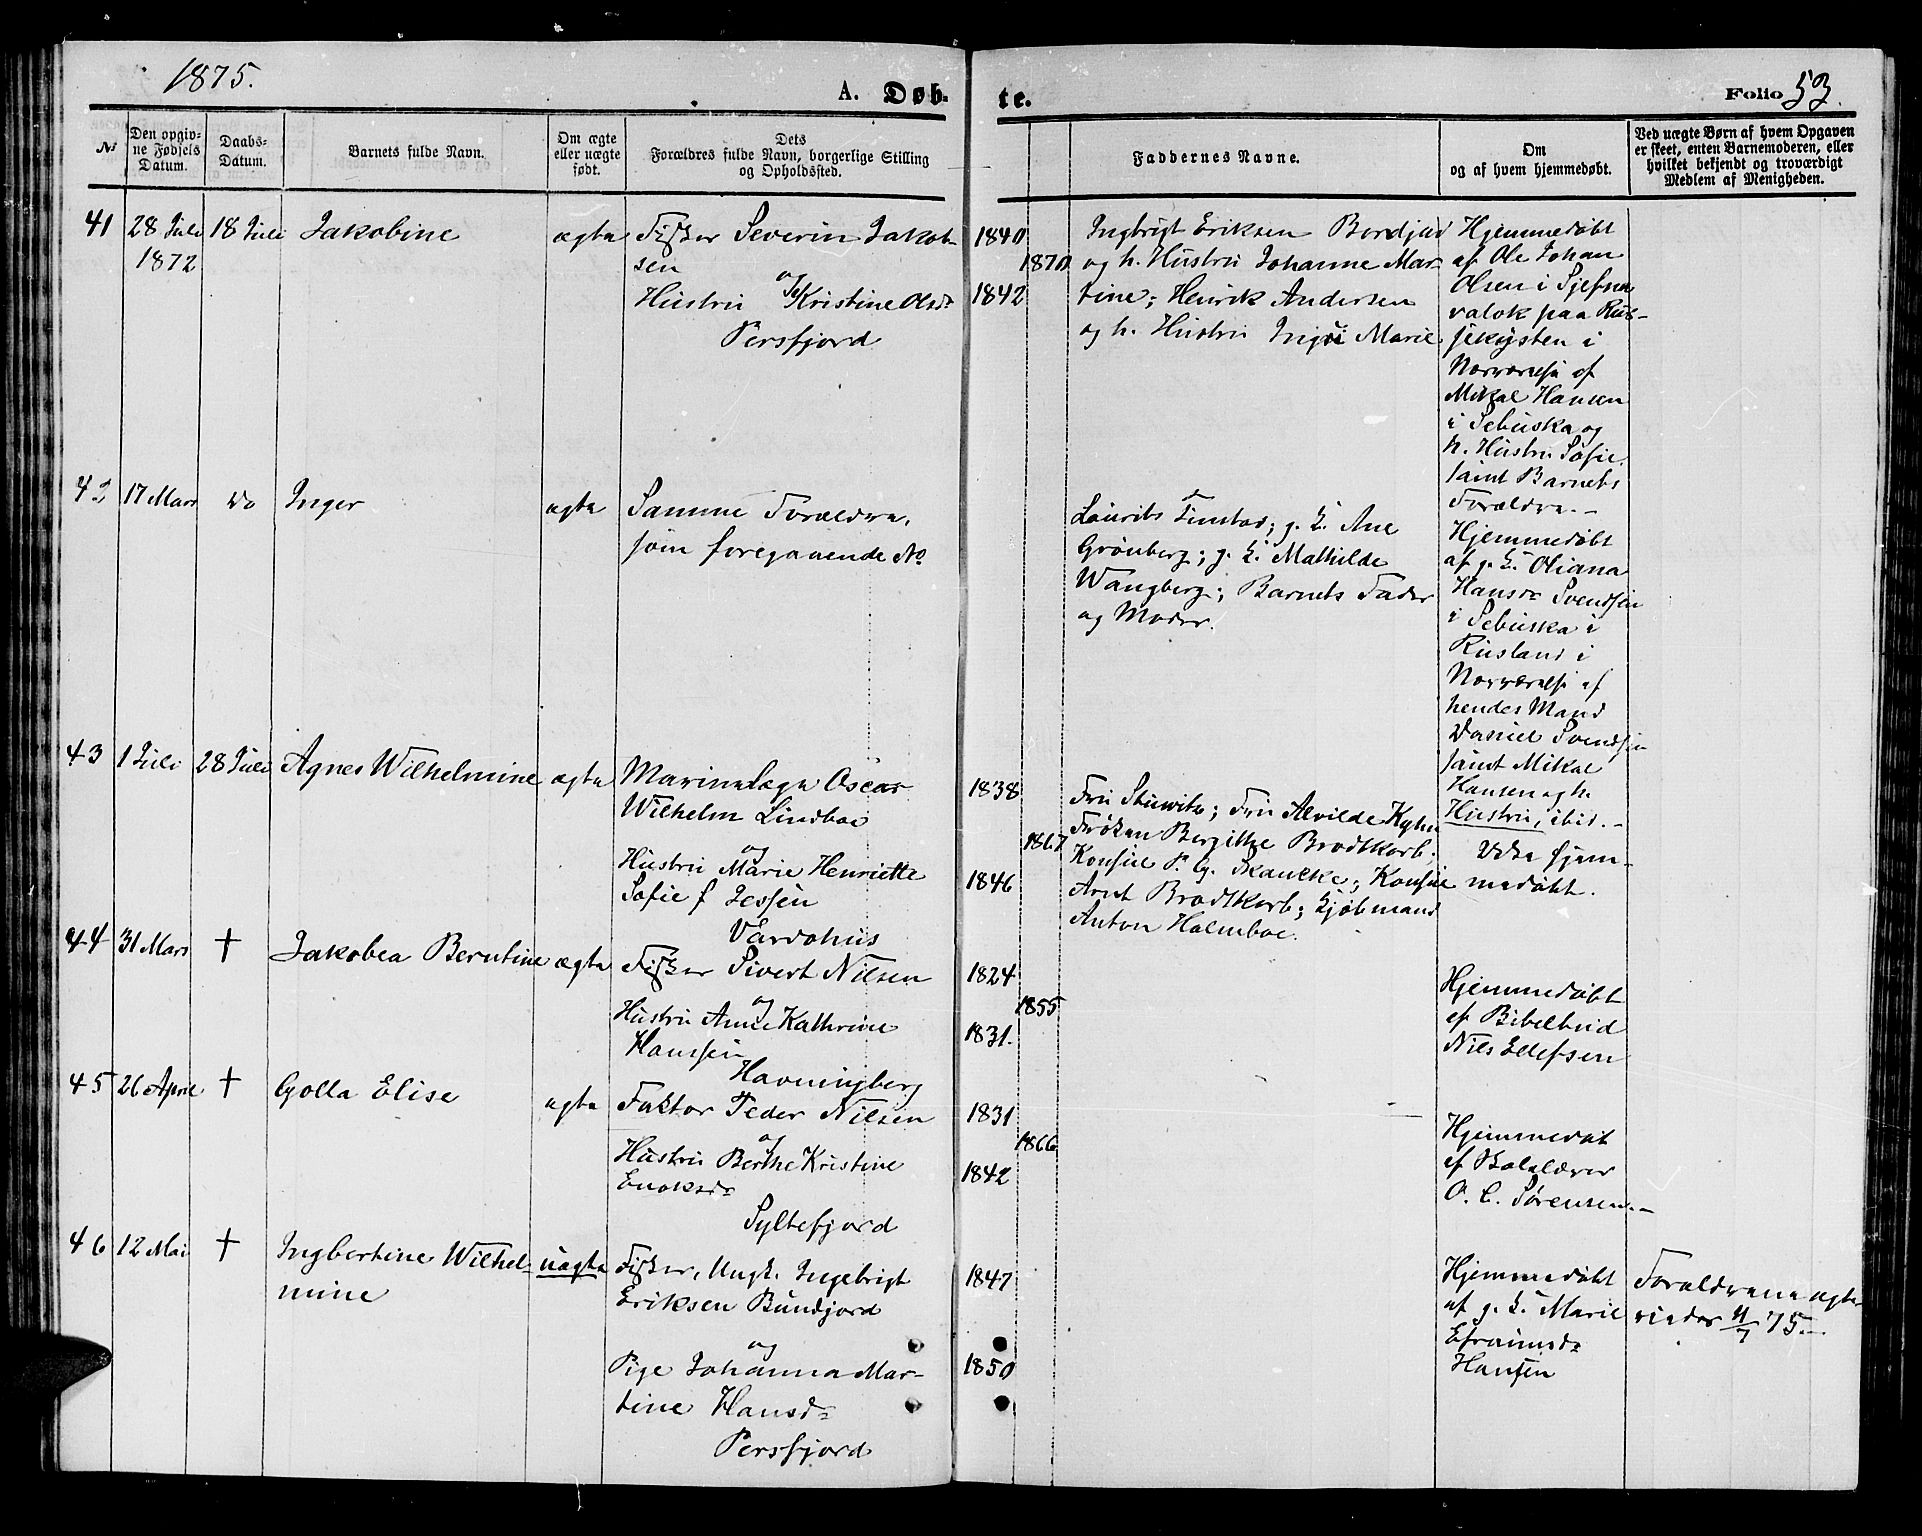 1875.
A. Døb-
te.
Folio 53.
№
Den opgiv-
ne Fødsels
Datum.
Daabs-
Datum.
Barnets fulde Navn.
Om ægte
eller uægte
født.
Dets
Forældres fulde Navn, borgerlige Stilling
og Opholdssted.
Faddernes Navne.
Om
og af hvem hjemmedøbt.
Ved uægte Børn af hvem Opgaven
er skeet, enten Barnemoderen, eller
hvilket bekjendt og troværdigt
Medlem af Menigheden.
41
28 Juli
1872
18 Juli
Jakobine
ægte
Fisker Severin Jakob-
sen
og
Hustru Kristine Olsd.
Persfjord
1840
1870
1842
Ingbrigt Eriksen
og h. Hustru Johanne Mar-
tine; Henrik Andersen
og h. Hustru Marie
Hjemmedøbt
af Ole Johan
Olsen i
valok paa Rus-
sekysten i
Nærværelse af
Mikal Hansen
i Sebuska og
h. Hustru Sofie
samt Barnets
Forældre.-
42
17 Mars
Do
Inger
ægte
Samme Forældre,
som foregaaende No
Laurits Finstad; g. K. Ane
Grønberg; g. K. Mathilde
Wangberg; Barnets Fader
og Moder.
Hjemmedøbt
af g. K. Oliana
Hansd. Svendsen
i Sebuska i
Rusland i
Nærværelse af
hendes Mand
Daniel Svendsen
samt Mikal
Hansen og h.
Hustru, ibid.-
43
1 Juli
28 Juli
Agnes Wilhelmine
ægte
Marinelæge Oscar
Wilhelm Lindboe
og
Hustru Marie Henriette
Sofie f Jessen
Vardøhus
1838
1867
1846
Fru Stuwitz; Fru Alvilde
Frøken Bergithe Brodtkorb;
Konsul P. G. Skancke; Konsul
Arnt Brodtkorb; Kjøbmand
Anton Holmboe.
Ikke hjem-
medøbt.
44
31 Mars
†
Jakobea Berntine
ægte
Fisker Sivert Nilsen
og
Hustru Anne Kathrine
Hanssen
Havningberg
1824
1855
1831.
Hjemmedøbt
af Bibelbud
Nils Ellefsen
45
26 April
†
Golla Elise
ægte
Faktor Peder Nilsen
og
Hustru Berthe Kristine
Enoksd.
Syltefjord
1831
1866
1842
Hjemmedøbt
af Skolelærer
O. C. Sørensen.-
46
12 Mai
†
Ingbertine Wilhel-
mine
uægte
Fisker, Ungk. Ingebrigt
Eriksen Bundjord
og
Pige Johanna Mar-
tine Hansd.
Persfjord
1847
1850
Hjemmedøbt
af g. K. Marie
Efraimsd.
Hansen
Forældrene ægte-
viedes 11/7 75.-